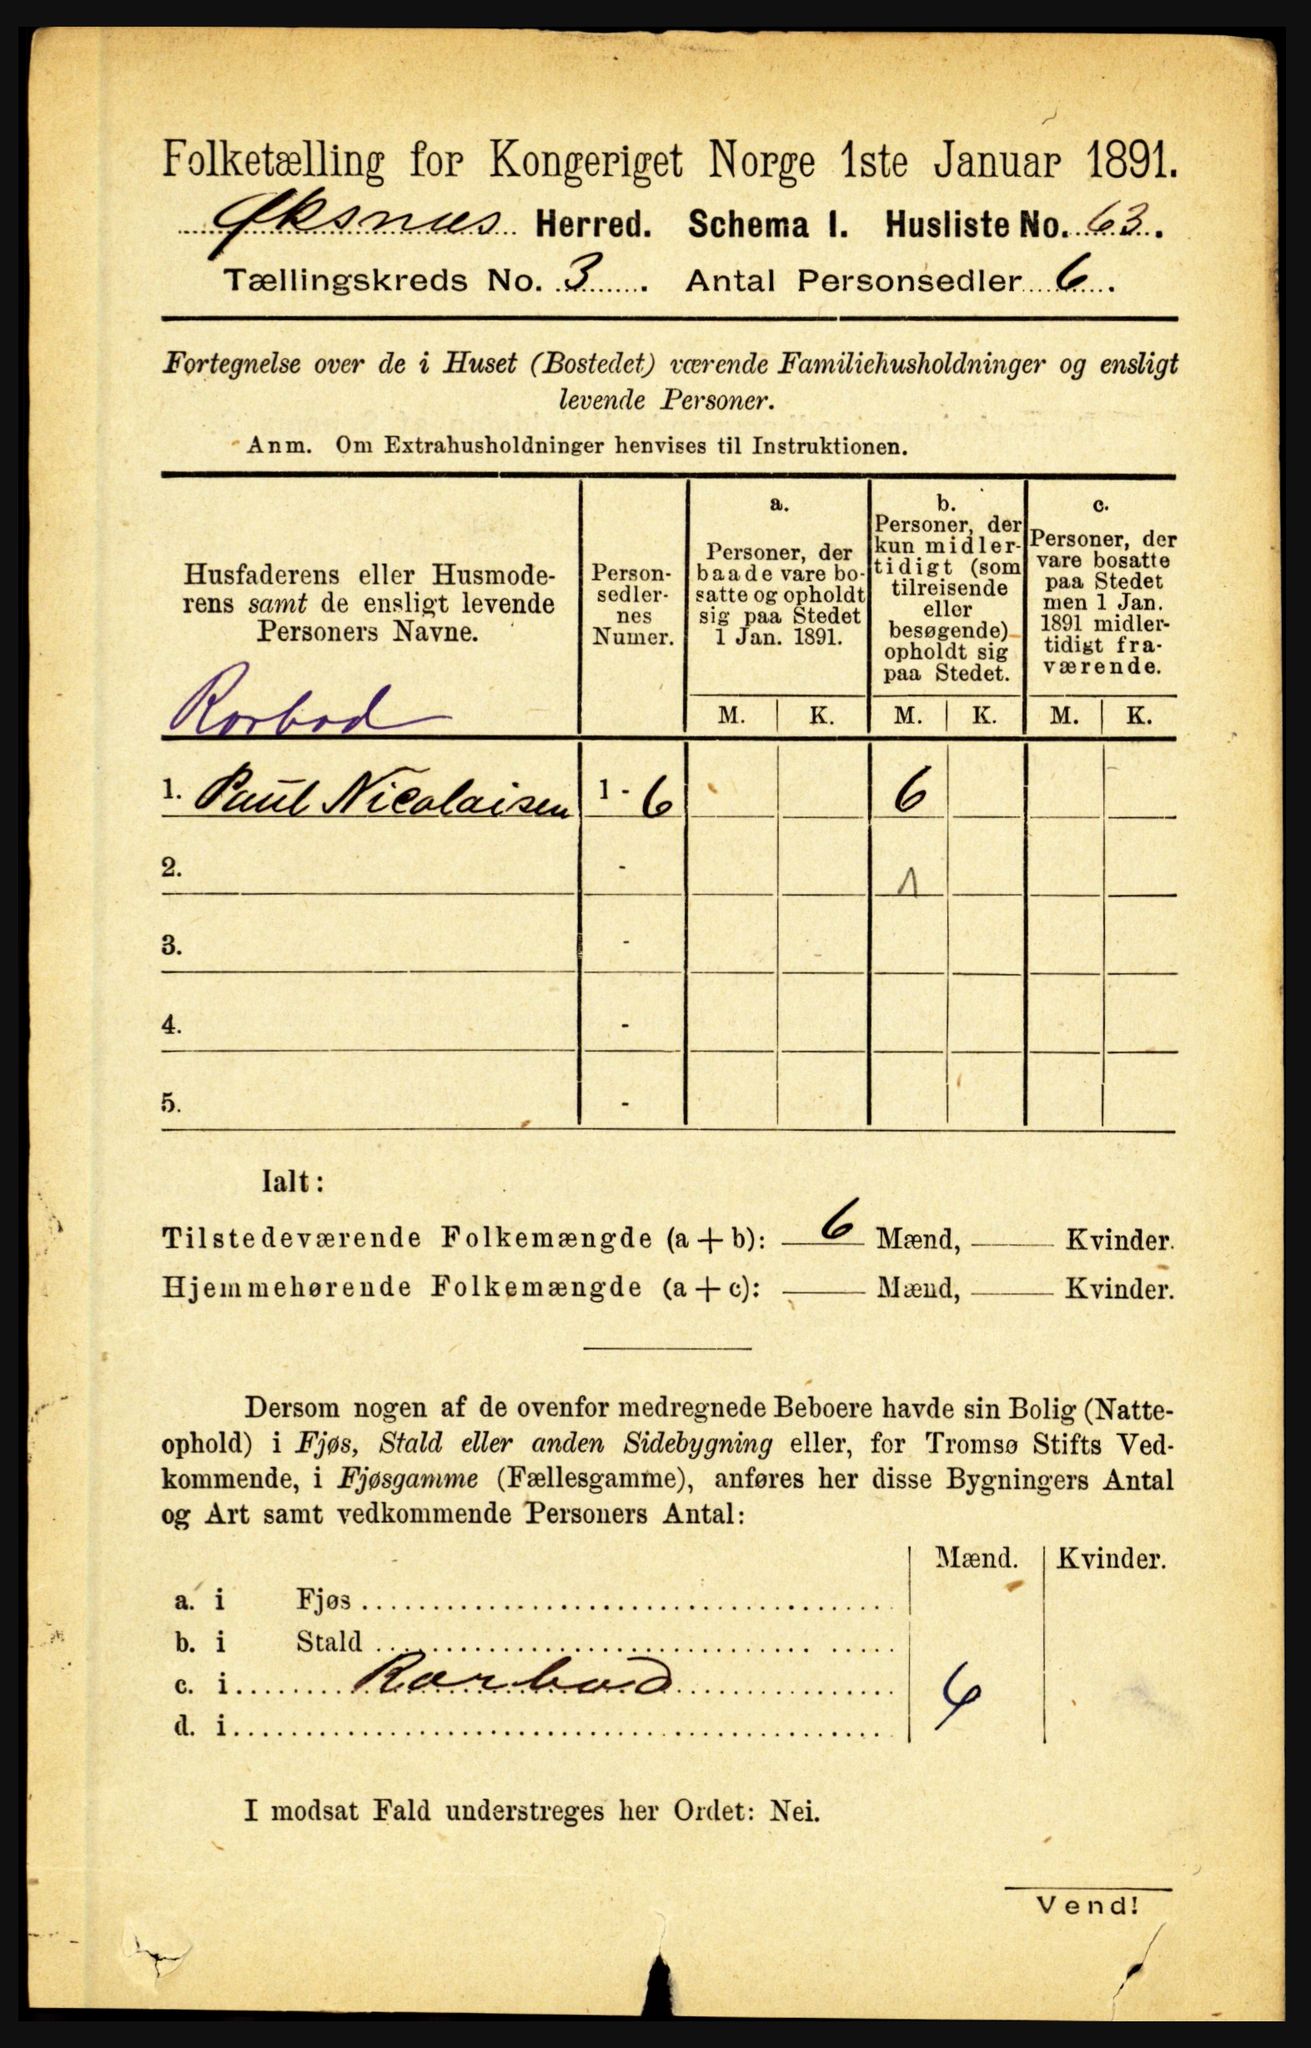 Folketælling for Kongeriget Norge 1ste Januar 1891.
Øksnæs Herred. Schema I. Husliste No. 63.
Tællingskreds No. 3. Antal Personsedler 6.
Fortegnelse over de i Huset (Bostedet) værende Familiehusholdninger og ensligt
levende Personer.
Anm. Om Extrahusholdninger henvises til Instruktionen.
Husfaderens eller Husmode-
rens samt de ensligt levende
Personers Navne.
Rorbod
Person-
sedler-
nes
Numer.
a.
Personer, der
baade vare bo-
satte og opholdt
sig paa Stedet
1 Jan. 1891.
b.
Personer, der
kun midler-
tidigt (som
tilreisende
eller
besøgende)
opholdt sig
paa Stedet.
c.
Personer, der
vare bosatte
paa Stedet
men 1 Jan.
1891 midler-
tidigt fra-
værende.
M. K. M. K. M. K.
1. Paul Nicolaisen 1 - 6 6
2. - 1
3. -
4. -
5. -
Ialt:
Tilstedeværende Folkemængde (a + b): 6 Mænd, Kvinder.
Hjemmehørende Folkemængde (a + c): Mænd, Kvinder.
Dersom nogen af de ovenfor medregnede Beboere havde sin Bolig (Natte-
ophold) i Fjøs, Stald eller anden Sidebygning eller, for Tromsø Stifts Ved-
kommende, i Fjøsgamme (Fællesgamme), anføres her disse Bygningers Antal
og Art samt vedkommende Personers Antal:
Mænd. Kvinder.
a. i Fjøs
b. i Stald
c. i Rorbod 6
d. i
I modsat Fald understreges her Ordet: Nei.
Vend!